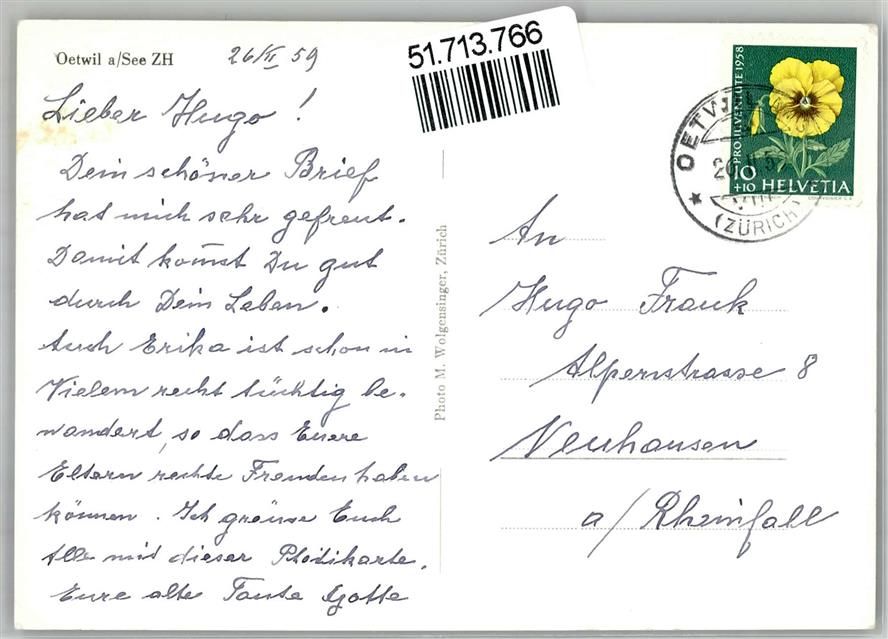 Oetwil a/See ZH
26/II 59
51.713.766
Lieber Hugo !
Dein schöner Brief
hat mich sehr gefreut.
Damit kom̄st Du gut
durch Dein Leben.
Auch Erika ist schon in
Vielem recht tüchtig be-
wandert, so dass Euere
Eltern rechte Freuden haben
können. Ich grüsse Euch
Alle mit dieser Photikarte.
Eure alte Tante Gotte
Photo M. Wolgensinger, Zürich
PRO JUVENTUTE 1958
10
+10 HELVETIA
OETWIL
(ZÜRICH)
An
Hugo Frauk
Alpenstrasse 8
Neuhausen
a/ Rheinfall